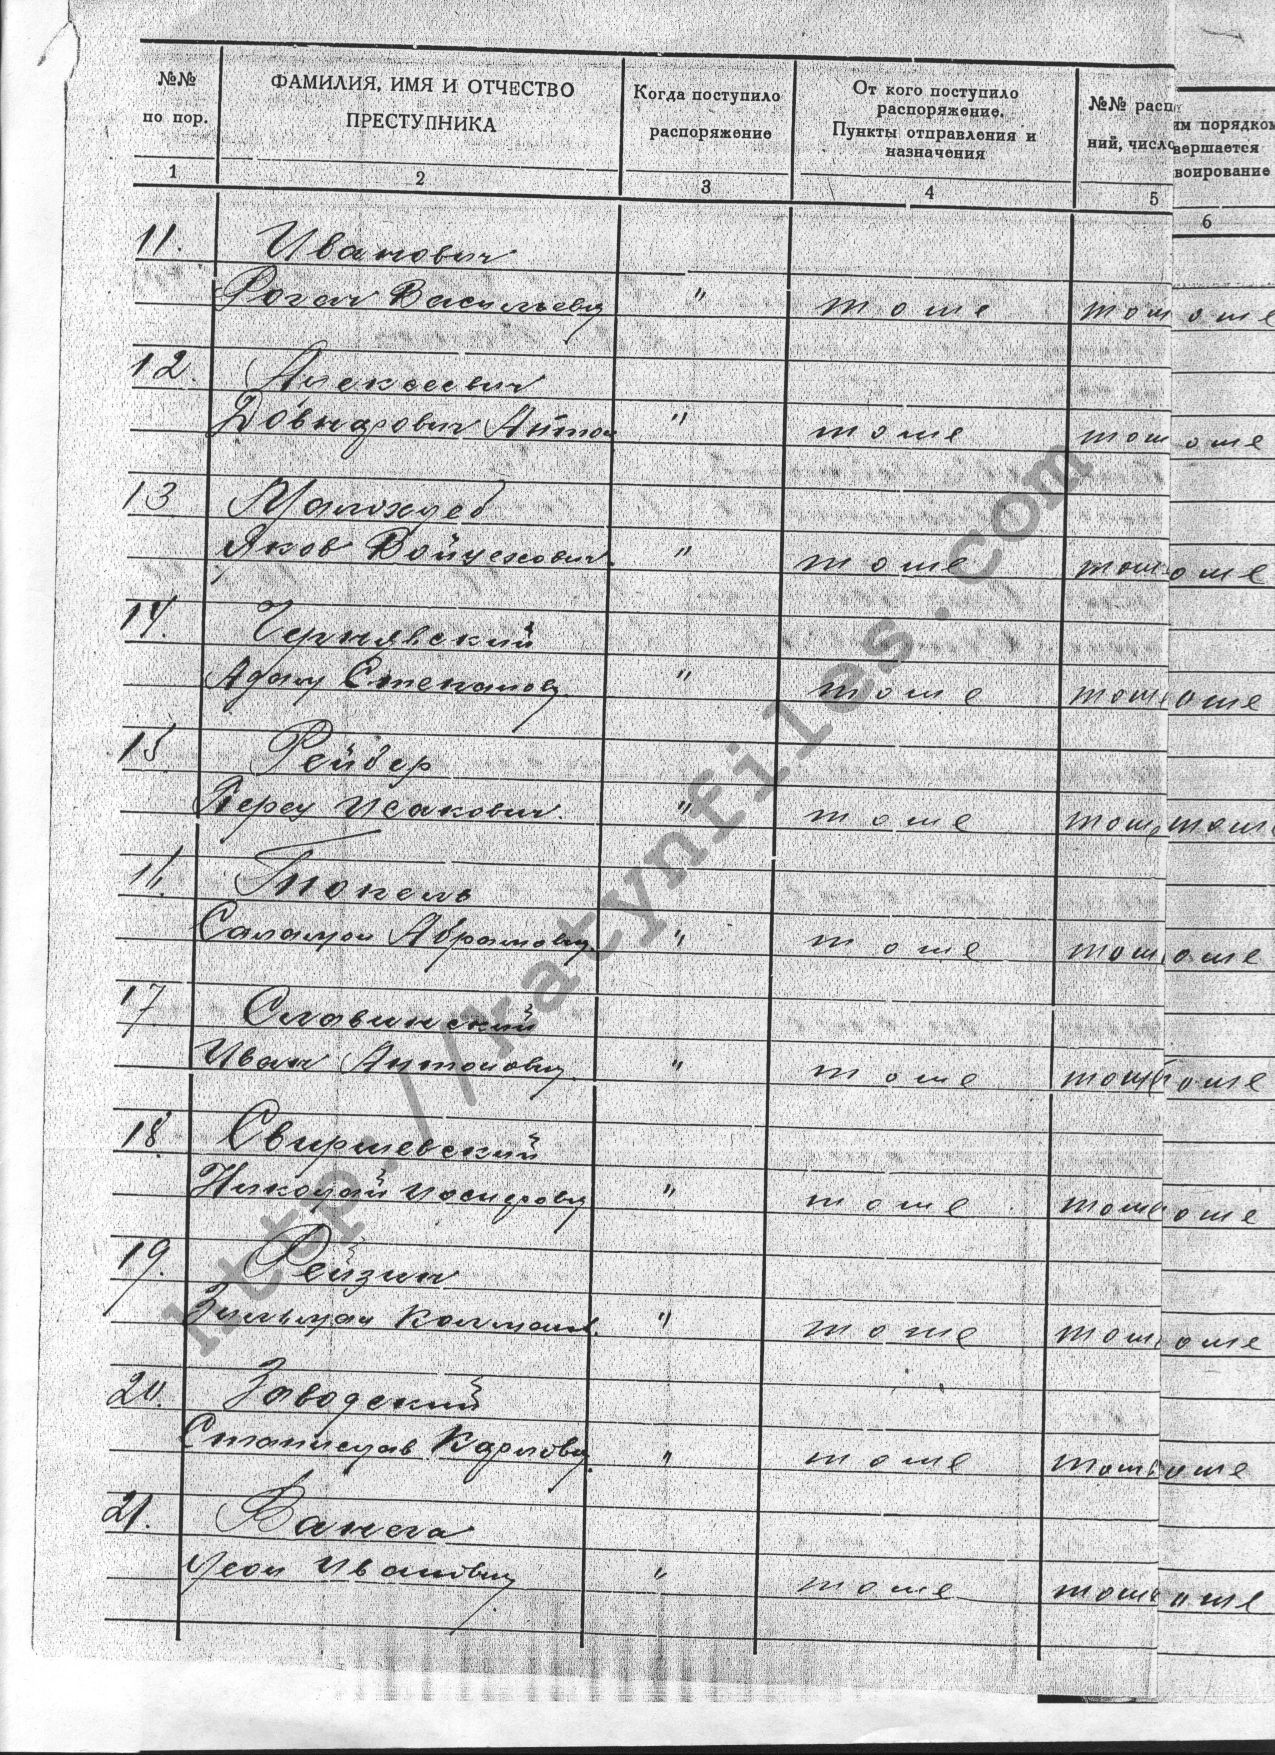 №№ по пор.
ФАМИЛИЯ, ИМЯ И ОТЧЕСТВО
ПРЕСТУПНИКА
Когда поступило
распоряжение
От кого поступило
распоряжение.
Пункты отправления и
назначения
№№ расп
ний, число
им порядком
вершается
воирование
1 2 3 4 5 6
11. Иванович
Роган Васильевич " тоже тож оже
12. Алексеевич
Довнарович Антон " тоже тож оже
13 Малохлеб
Яков Войцехович " тоже тож оже
14. Чернявский
Адам Степанович " тоже тож оже
15 Рейбер
Перец Исакович. " тоже тож тоже
16. Тюкель
Саламон Абрамович " тоже тож оже
17. Славинский
Иван Антонович " тоже тож оже
18. Свиршевский
Николай Иосифович " тоже тож оже
19. Рейзин
Зильман Калман. " тоже тож оже
20. Заводский
Станислав Карлович " тоже тож оже
21. Ванега
Леон Иванович " тоже тож оже
http://katynfiles.com